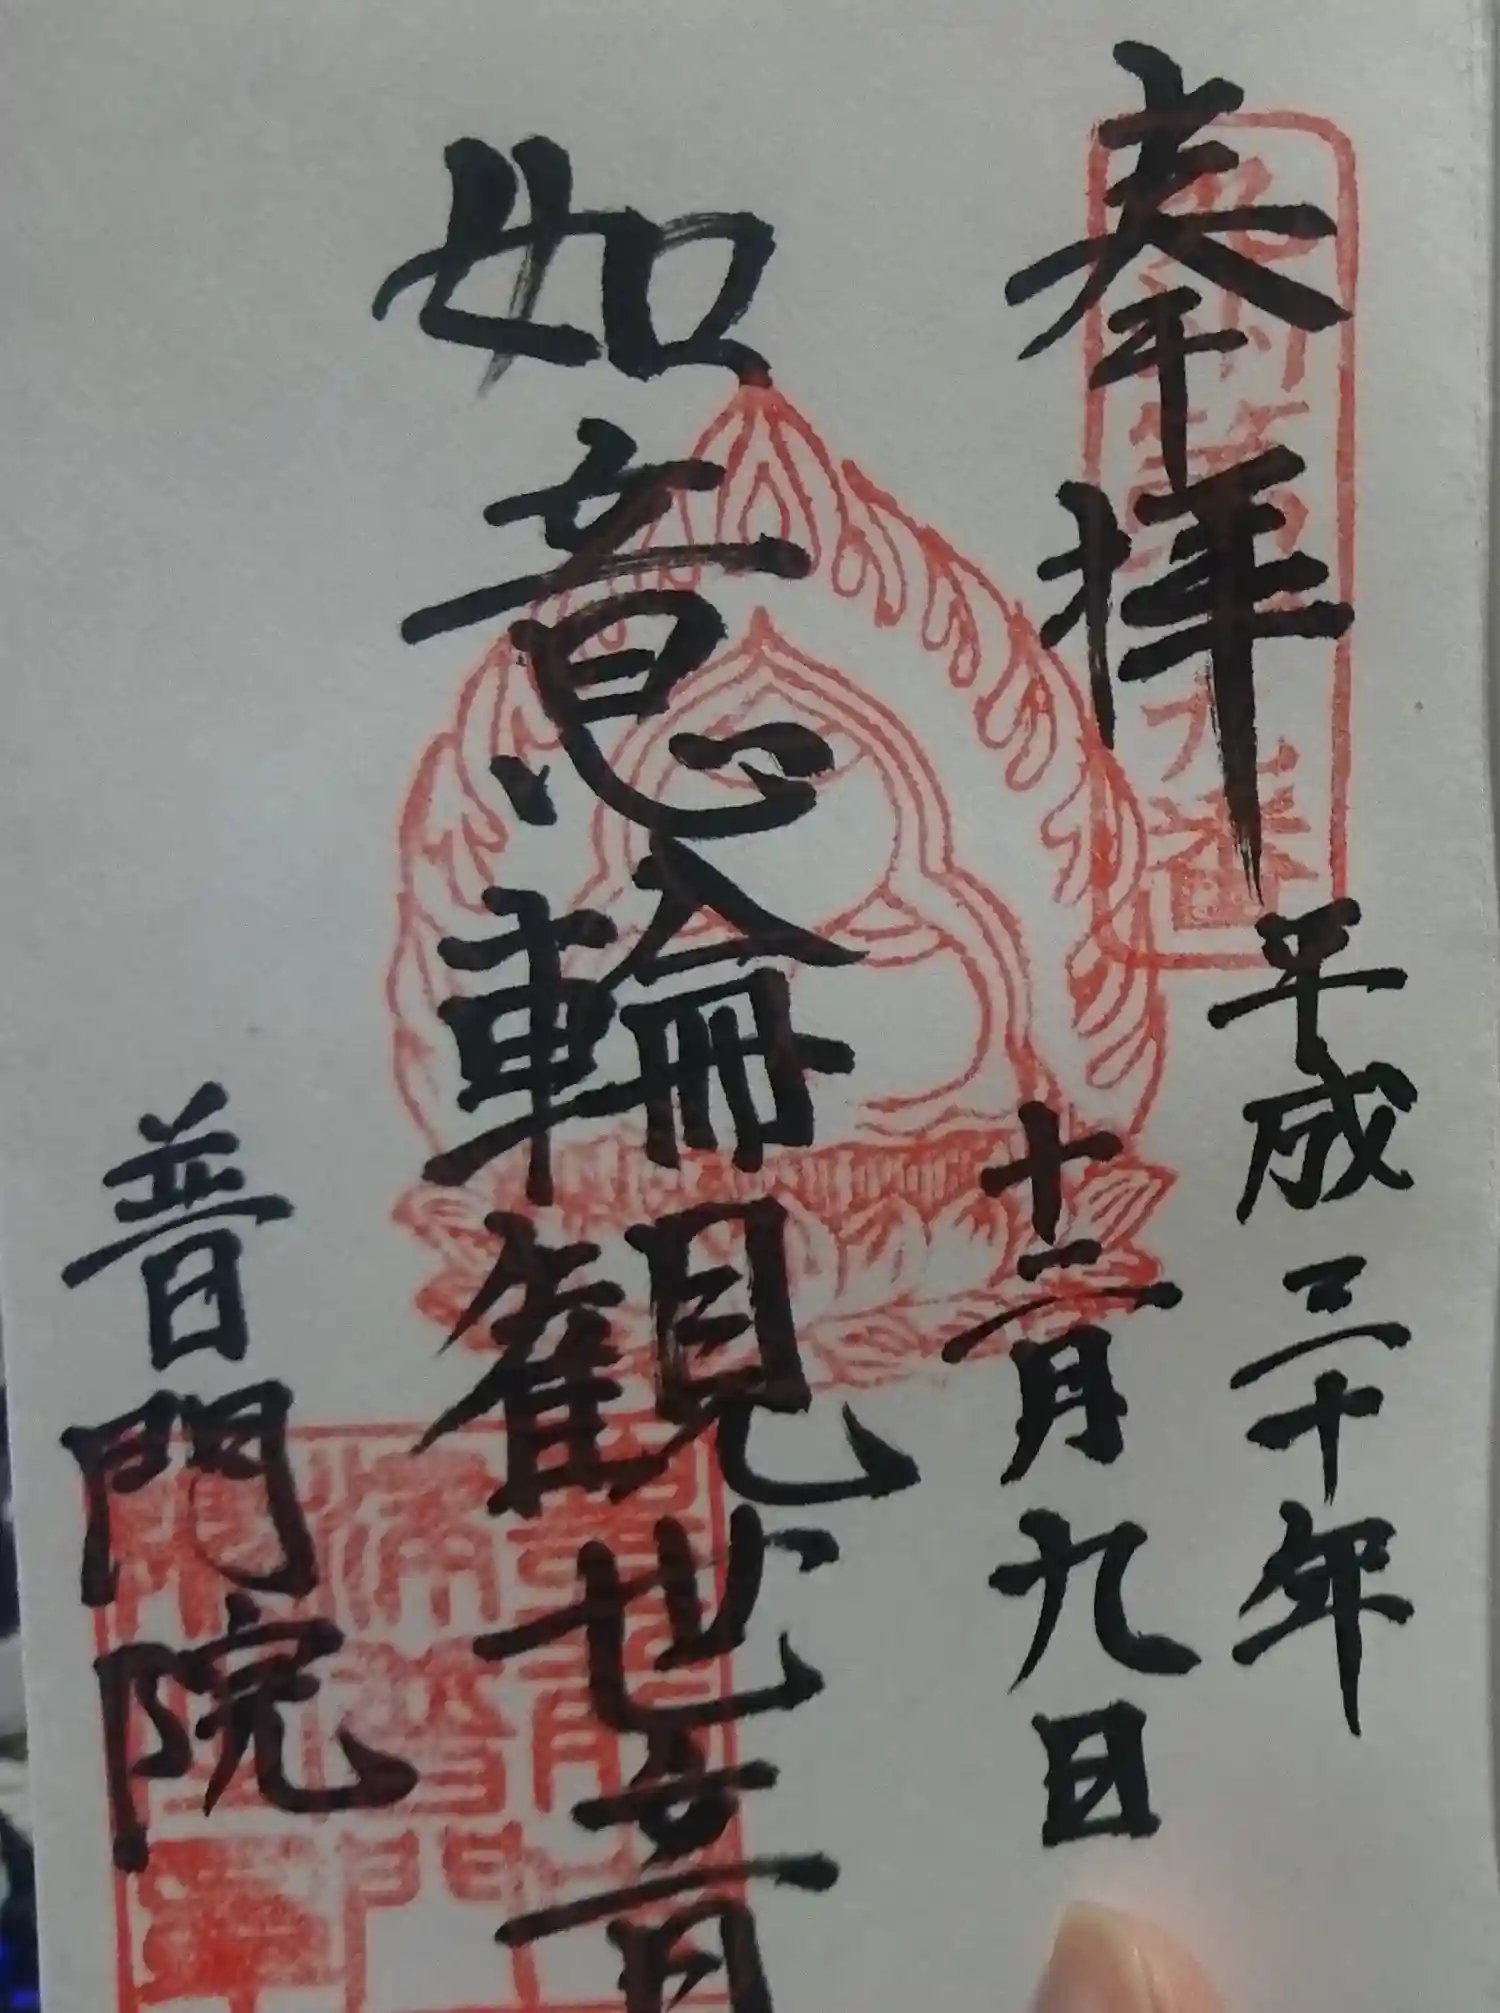 奉拝
平成三十年
十二月九日
如意輪観世音
普門院